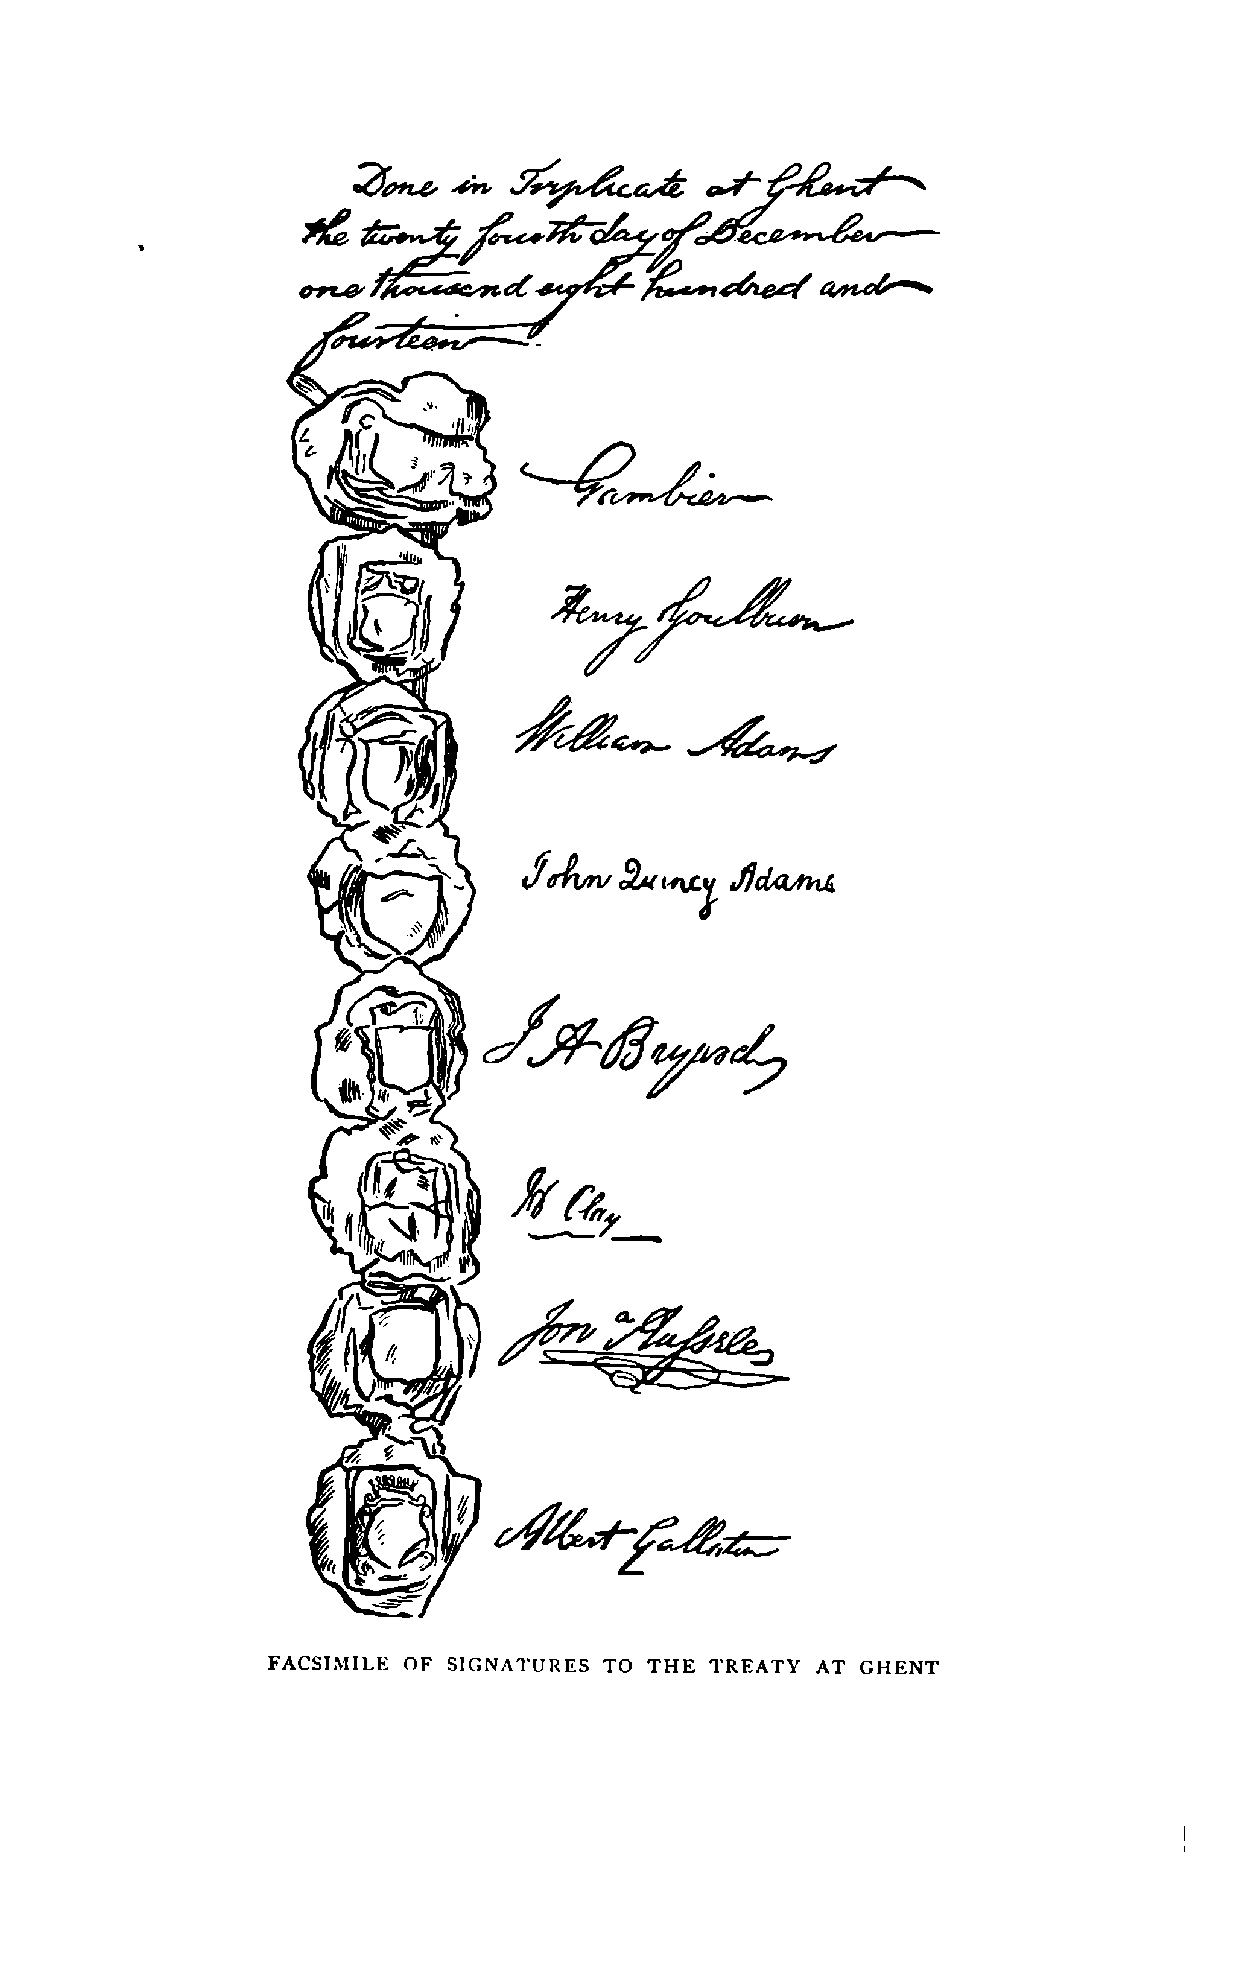 Done in Triplicate at Ghent
the twenty fourth day of December
one thousand eight hundred and
fourteen.
Gambier
Henry Goulburn
William Adams
John Quincy Adams
J A Bayard
H Clay
Jon a Russell
Albert Gallatin
FACSIMILE OF SIGNATURES TO THE TREATY AT GHENT